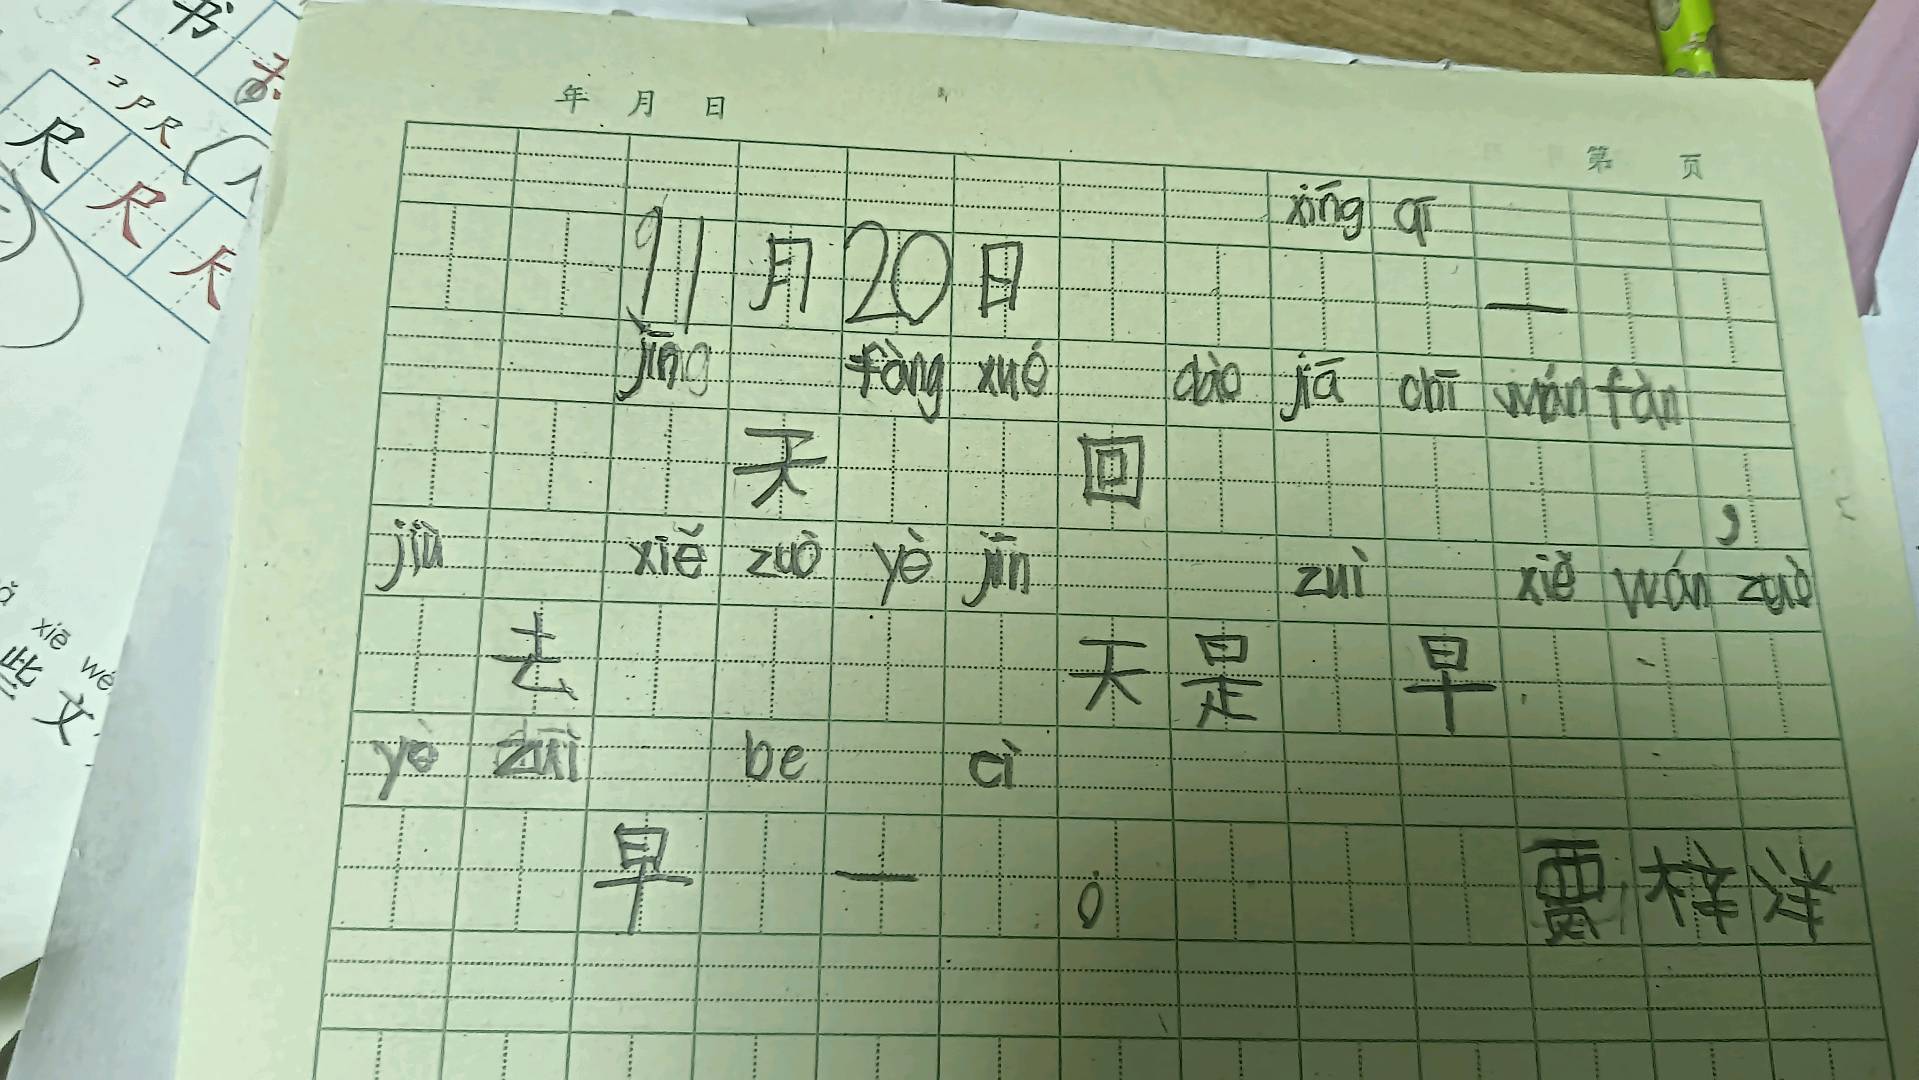 书
尺
尺 尺
xiē wé
些 文
年 月 日
第 页
xīng qī
11月20日 一
jīng fàng xué dào jiā chī wán fàn
天 回 ，
jiù xiě zuò yè jīn zuì xiě wán zuò
去 天是 早
yè zuì be cì
早 一 。 贾梓洋